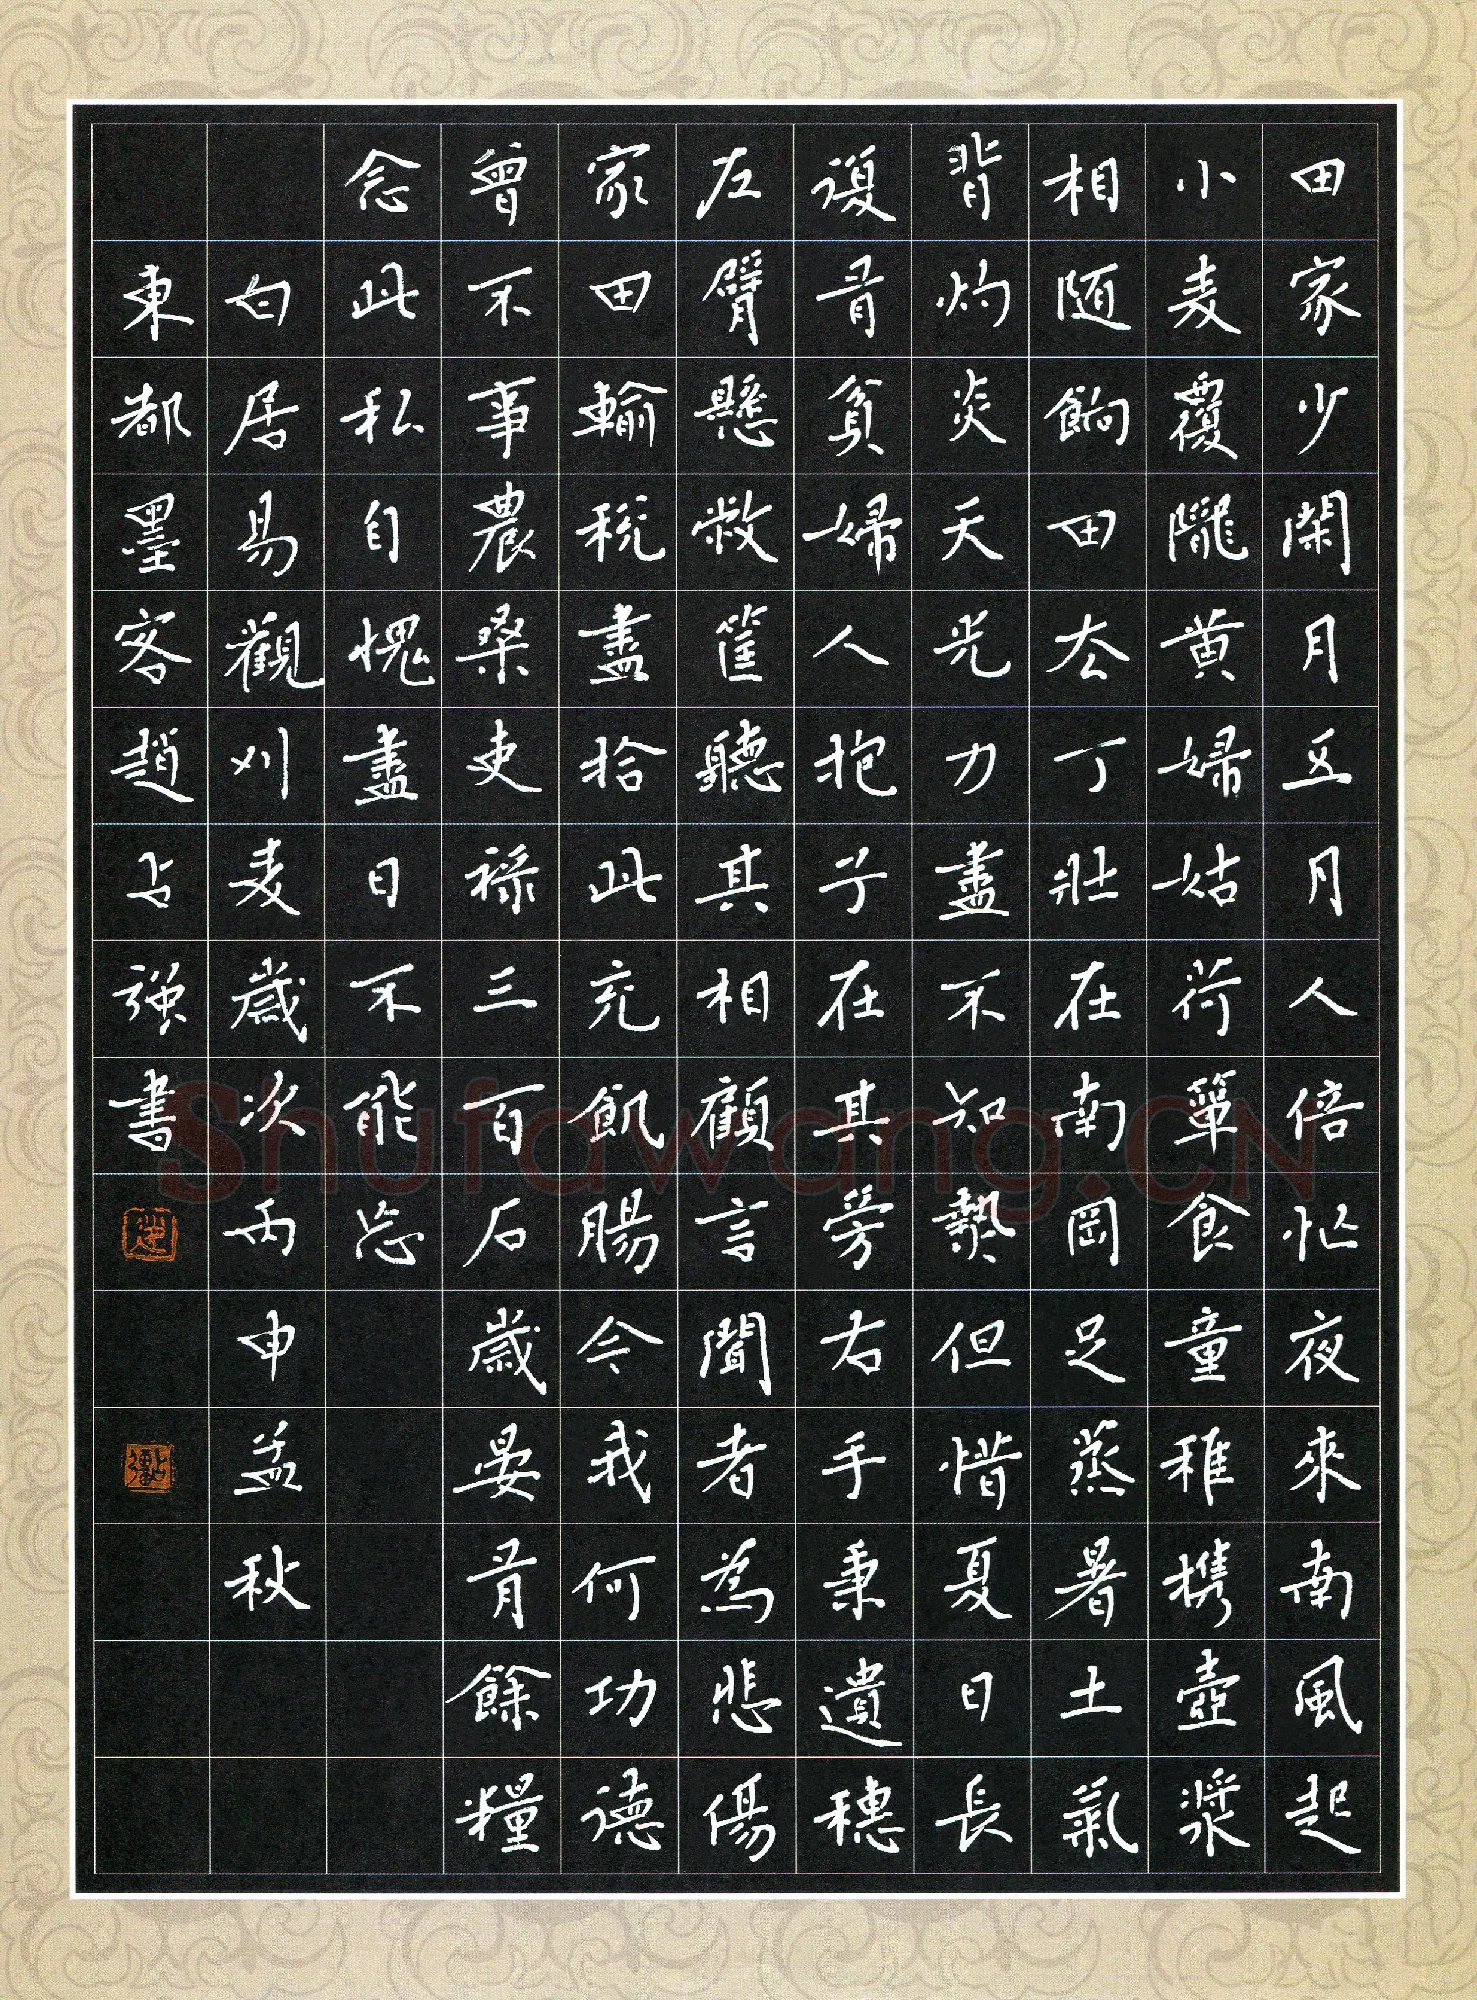 田家少閑月五月人倍忙夜來南風起
小麦覆隴黄婦姑荷簞食童稚携壺漿
相随餉田去丁壯在南岡足蒸暑土氣
背灼炎天光力盡不知熱但惜夏日長
復有貧婦人抱子在其旁右手秉遺穗
左臂懸敝筐聽其相顧言聞者為悲傷
家田輸税盡拾此充飢腸今我何功德
曾不事農桑吏禄三百石歲晏有餘糧
念此私自愧盡日不能忘
白居易觀刈麦歲次丙申孟秋
東都墨客趙占强書
Shufawang.CN